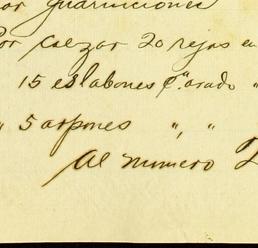 or guarniciones
Por calzar 20 rejas en
15 eslabones pª arado "
" 5 arpones " , "
Al numero